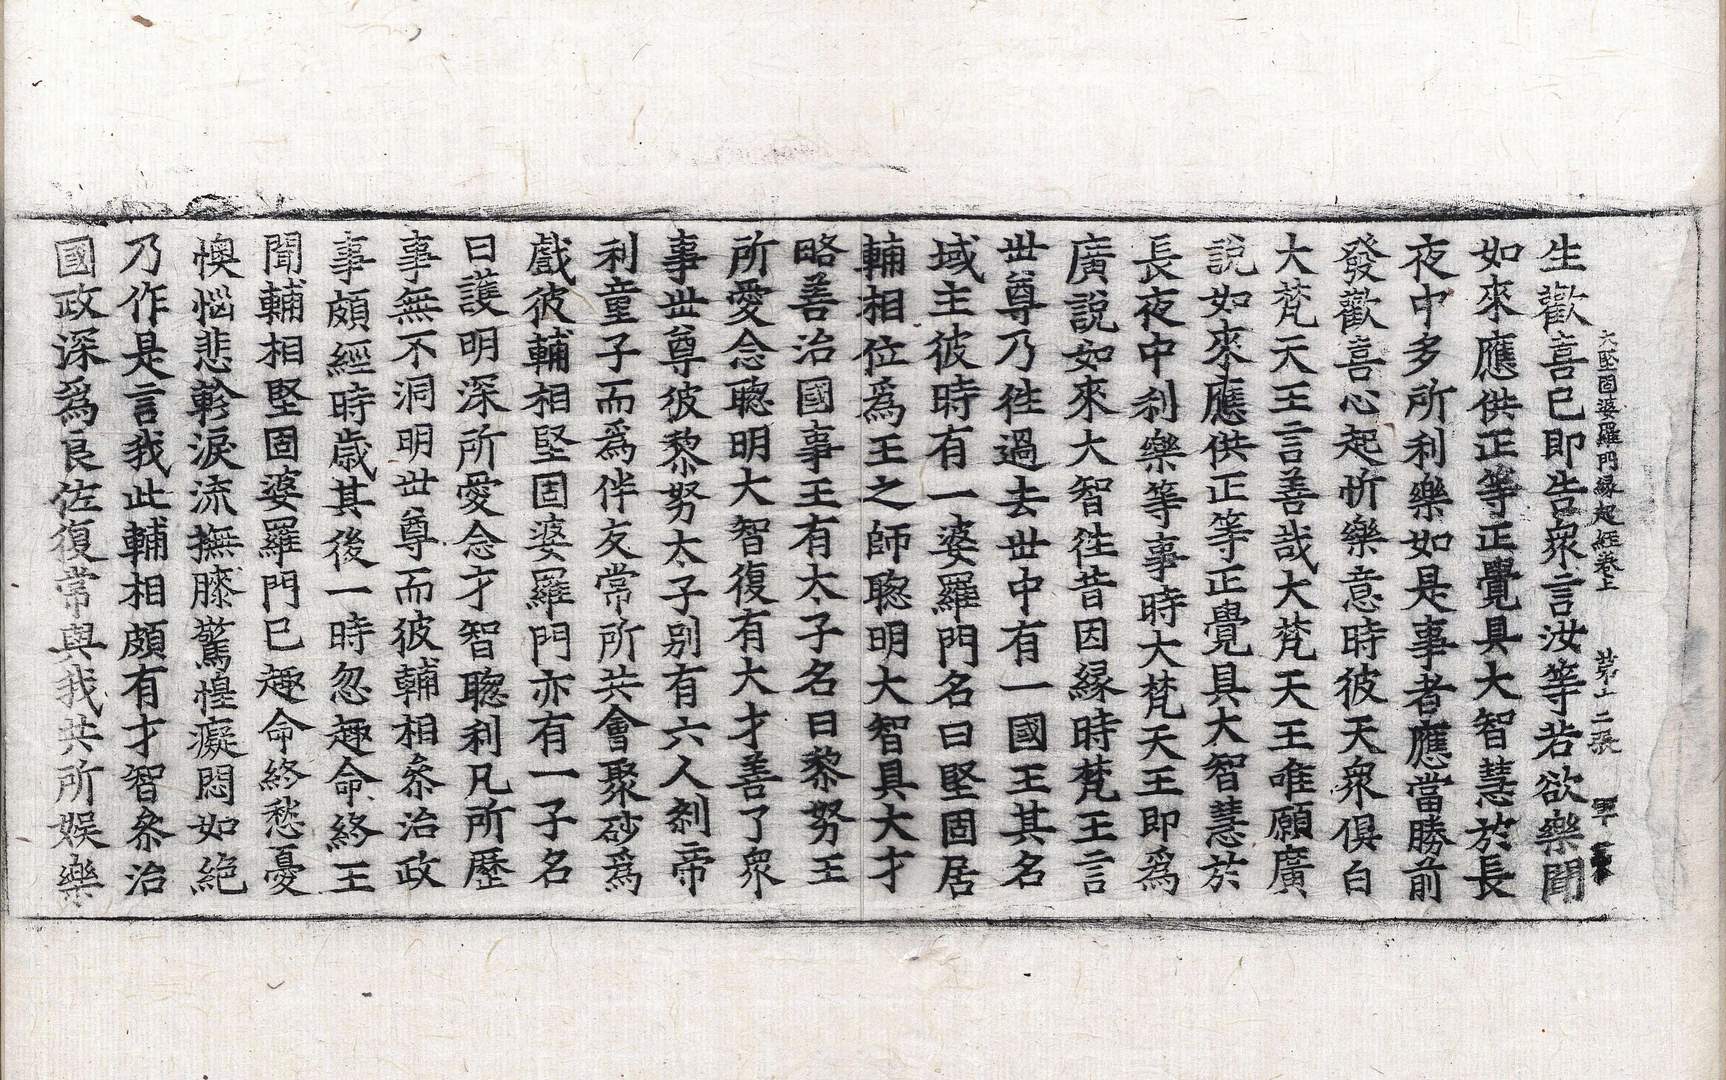 大堅固婆羅門縁起經卷上 苐十二張 寧
生歡喜已即告衆言汝等若欲樂聞
如來應供正等正覺具大智慧於長
夜中多所利樂如是事者應當勝前
發歡喜心起忻樂意時彼天衆俱白
大梵天王言善哉大梵天王唯願廣
說如來應供正等正覺具大智慧於
長夜中利樂等事時大梵天王即為
廣說如來大智徃昔因縁時梵王言
丗尊乃徃過去丗中有一國王其名
域主彼時有一婆羅門名曰堅固居
輔相位為王之師聦明大智具大才
略善治國事王有太子名曰黎努王
所愛念聦明大智復有大才善了衆
事丗尊彼黎努太子别有六人刹帝
利童子而為伴友常所共會聚砂為
戲彼輔相堅固婆羅門亦有一子名
曰護明深所愛念才智聦利凡所歷
事無不洞明丗尊而彼輔相叅治政
事頗經時歲其後一時忽趣命終王
聞輔相堅固婆羅門已趣命終愁憂
懊惱悲軫淚流撫膝驚惶癡悶如絕
乃作是言我此輔相頗有才智叅治
國政深為良佐復常與我共所娛樂